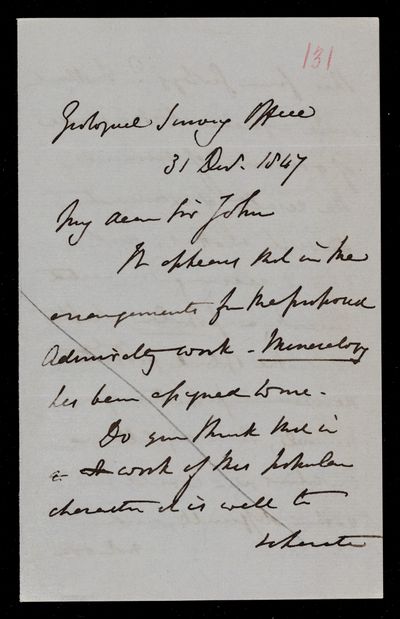 131
Geological Survey Office
31 Dec. 1847
My dear Sir John
It appears that in the
arrangements for the proposed
Admiralty work - Mineralogy
has been assigned to me.
Do you think that in
a work of this popular
character it is well to